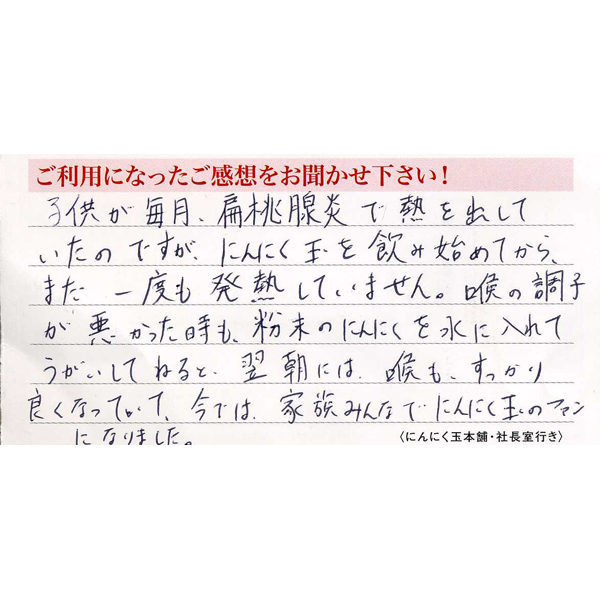 ご利用になったご感想をお聞かせ下さい！
子供が毎月、扁桃腺炎で熱を出して
いたのですが、にんにく玉を飲み始めてから、
まだ一度も発熱していません。喉の調子
が悪かった時も、粉末のにんにくを水に入れて
うがいしてねると、翌朝には、喉も、すっかり
良くなっていて、今では、家族みんなでにんにく玉のファン
になりました。
〈にんにく玉本舗・社長室行き〉